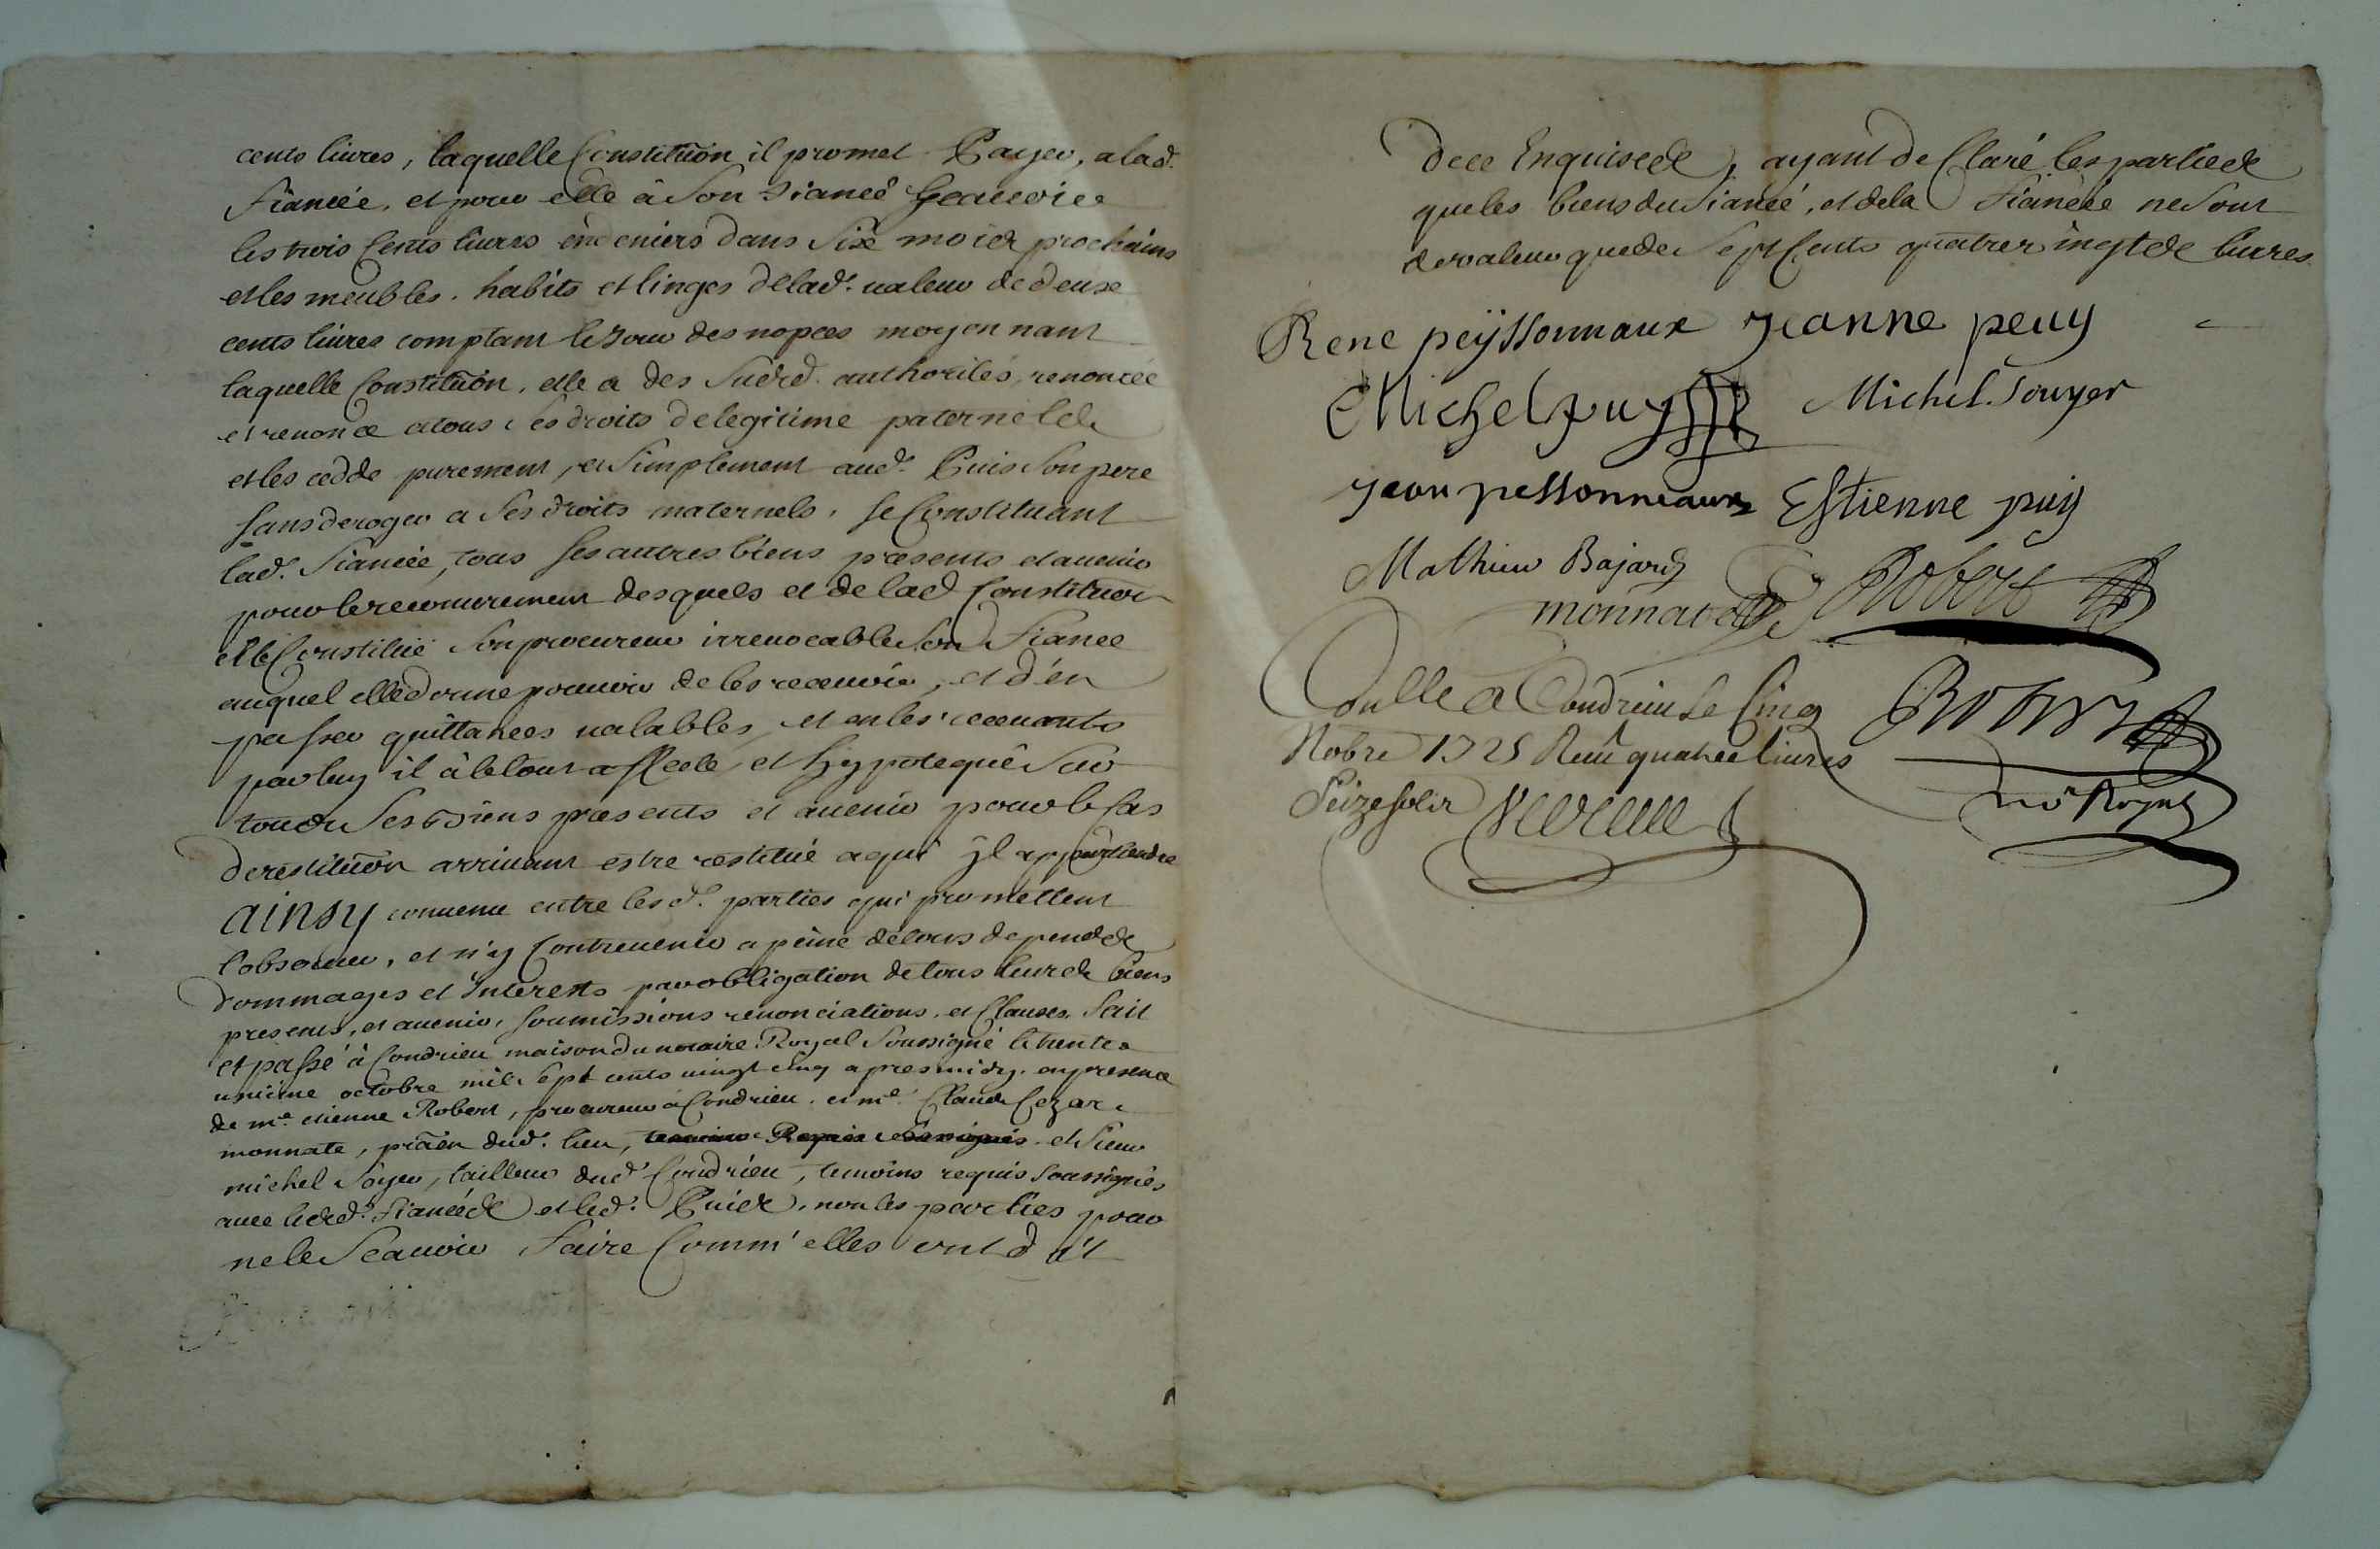 cents livres, laquelle Constitution il promet Payer, a lad.
fiancée, et pour elle à son fiancé Scauoir
les trois Cents livres en deniers dans Six mois prochains
et les meubles, habits et linges de lad. ualeur de deux
cents liures comptant le Jour des nopces moyennant
laquelle Constitution, elle a des susd. authorités, renoncée
et renonce a tous ses droits de legitime paternels
et les cedde purement, et simplement aud. Puis son pere
sans deroger a ses droits maternels, se Constituant
lad. fiancée, tous ses autres biens presents et auenir
pour le recouurement desquels et de lad Constitution
elle Constitüe son procureur irreuocable son fiancé
auquel elle donne pouuoir de les receuoir, et d'en
passer quittances ualables, et en les receuants
par luy il à le tout affecté et hypotequé sur
tous ses biens presents et auenir pour le Cas
de restitution arriuant estre restitué a qui jl appartiendra
ainsy conuenu entre lesd. parties qui promettent
l'obseruer, et n'y Contreuenir a peine de tous depends
dommages et interests par obligation de tous leurs biens
presents, et auenir, soumissions renonciations, et Clauses, fait
et passé à Condrieu maison du notaire Royal soussigné le trente
unieme octobre mil sept cents uingt cinq apres midy, en presence
de me etienne Robert, procureur à Condrieu, et me Claude Cezar
monnate, pratien dud. lieu, temoins Requis soussignés et sieur
michel soyer, tailleur dud Condrieu, temoins requis soussignés
auec lesd. fiancés et led. Puis, non les parties pour
ne le Scauoir faire Comm' elles ont dit
de ce Enquises, ayant declaré les parties
que les biens du fiancé, et de la fiancée ne sont
de valeur que de sept Cents quatre vingts livres
Rene peyssonnaux Jeanne peuy
Michel puy Michel Souyer
Jean pessonneaux Estienne puy
Mathieu Bajard
monnate Robert
Conllé a Condrieu le Cinq Robert
Nobre 1725 Reçu quatre livres
Seize solz no Royal